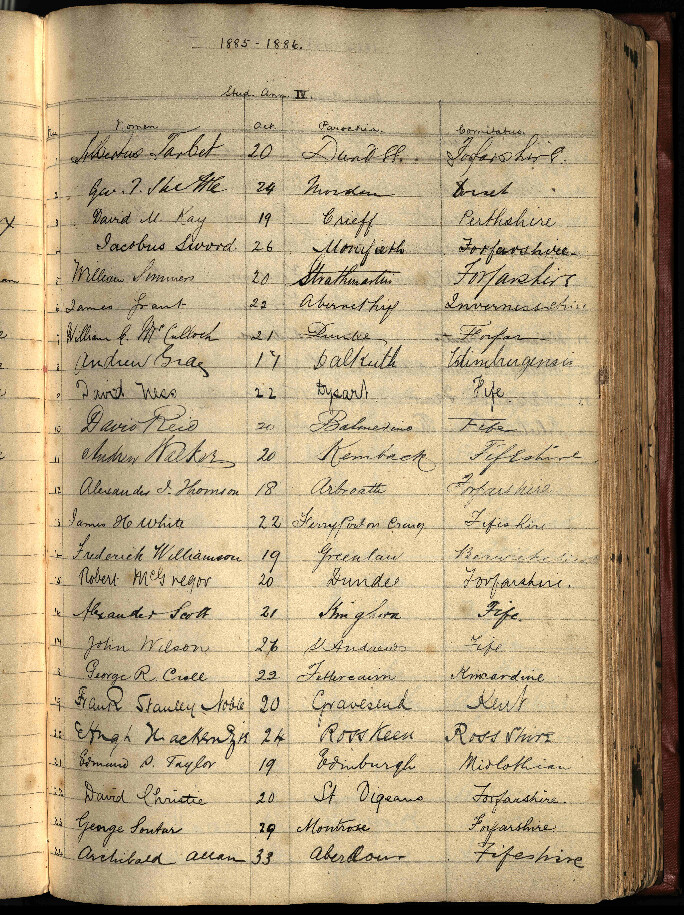 1885-1886.
Stud. Ann. IV.
Nomen Aet. Parochia. Comitatus.
1 Albertus Tarbet 20 Dundee. Forfarshire.
2 Geo. T. 24 Morden
3 David M. Kay 19 Crieff Perthshire
4 Jacobus Sword 26 Monifieth Forfarshire
5 William Simmers 20 Strathmartin Forfarshire
6 James Grant 22 Abernethy Inverness-shire
7 William C. McCulloch 21 Dundee Forfar
8 Andrew Gray 17 Dalkeith Edimburgensis
9 David Ness 22 Dysart Fife.
10 David Reid Balmerino Fife
11 Andrew Walker 20 Kemback Fifeshire
12 Alexander J. Thomson 18 Arbroath Forfarshire
13 James H. White 22 Ferry Port on Craig Fifeshire
14 Frederick Williamson 19 Greenlaw Berwickshire
15 Robert McGregor 20 Dundee Forfarshire.
16 Alexander Scott 21 Kinghorn Fife.
17 John Wilson 26 St Andrews Fife
18 George R. Croll 22 Fettercairn Kincardine
19 Frank Stanley Noble 20 Gravesend Kent
Hugh Mackenzie 24 Rosskeen Ross Shire
21 Edmund S. Taylor 19 Edinburgh Midlothian
22 David Christie 20 St Vigeans Forfarshire.
23 George Soutar 29 Montrose Forfarshire
24 Archibald Allan 33 Aberdour Fifeshire